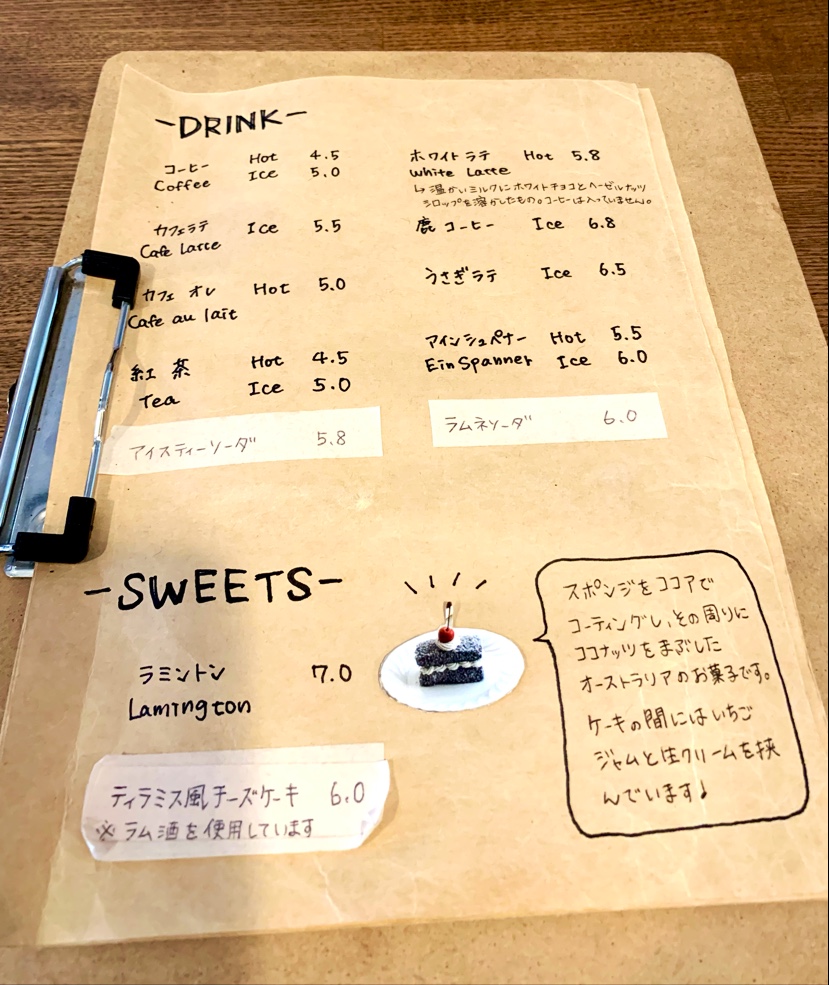 -DRINK-
コーヒー Hot 4.5
Coffee Ice 5.0
カフェラテ Ice 5.5
Cafe Latte
カフェ オレ Hot 5.0
Cafe au lait
紅 茶 Hot 4.5
Tea Ice 5.0
アイスティーソーダ 5.8
ホワイトラテ Hot 5.8
White Latte
↳温かいミルクにホワイトチョコとヘーゼルナッツ
シロップを溶かしたもの。コーヒーは入っていません。
鹿コーヒー Ice 6.8
うさぎラテ Ice 6.5
アインシュペナー Hot 5.5
EinSpanner Ice 6.0
ラムネソーダ 6.0
-SWEETS-
ラミントン 7.0
Lamington
ティラミス風チーズケーキ 6.0
※ラム酒を使用しています
スポンジをココアで
コーティングし、その周りに
ココナッツをまぶした
オーストラリアのお菓子です。
ケーキの間にはいちご
ジャムと生クリームを挟
んでいます♪